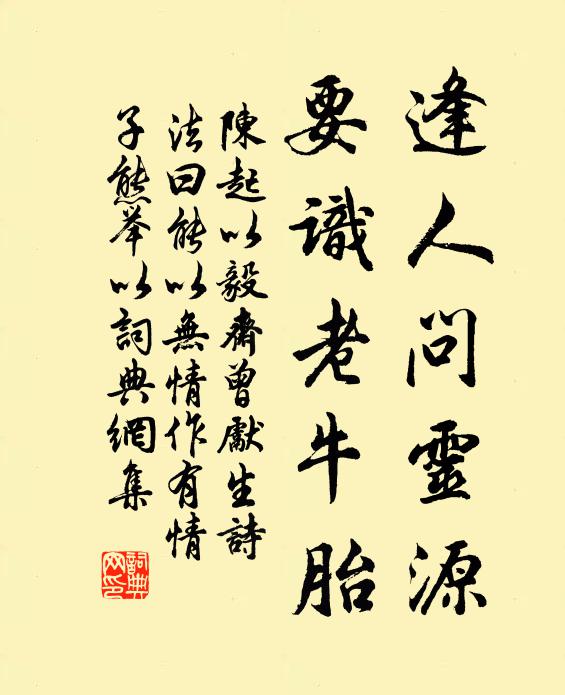 逢人問靈源
要識老牛胎
陳起以毅齋曾獻生詩
法曰能以無情作有情
子熊举以詞典網集
詞典
网印